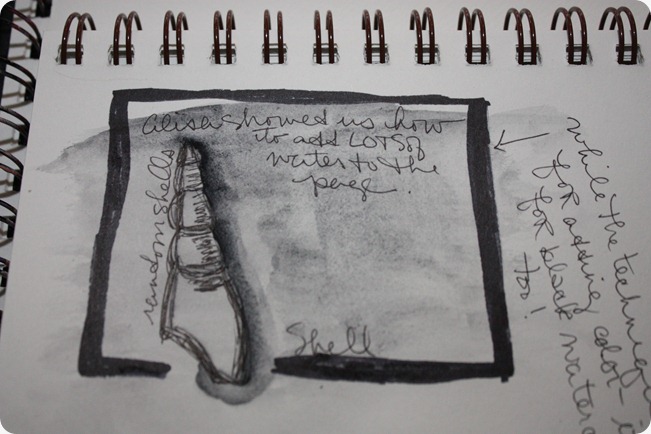 alisa showed us how
to add LOTS of
water to the
page!
random shells
Shell
while the techniq
for adding color - i
for black waterc
too!